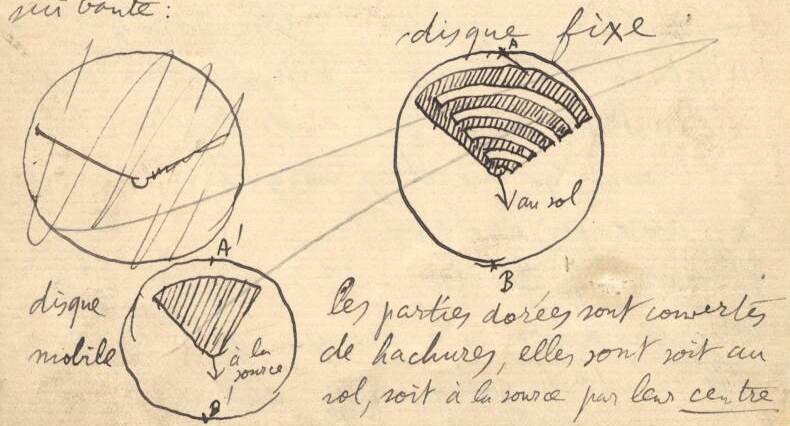 suivante :
disque fixe
A
au sol
B
A'
disque
mobile
à la
source
B'
les parties dorées sont couvertes
de hachures, elles sont soit au
sol, soit à la source par leur centre